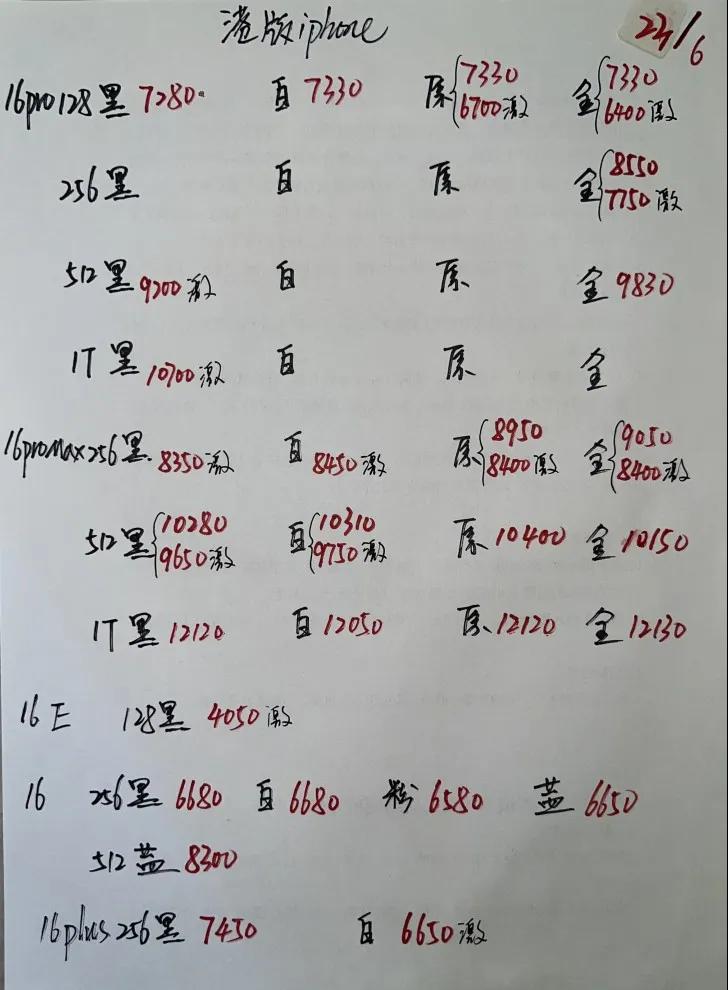 港版iphone 23/6
16pro128黑 7280 白 7330 原 7330 6700激 金 7330 6400激
256黑 白 原 金 8550 7750激
512黑 9200激 白 原 金 9830
1T黑 10700激 白 原 金
16promax256黑 8350激 白 8450激 原 8950 8400激 金 9050 8400激
512黑 10280 9650激 白 10310 9750激 原 10400 金 10150
1T黑 12120 白 12050 原 12120 金 12130
16E 128黑 4050激
16 256黑 6680 白 6680 粉 6580 蓝 6650
512蓝 8300
16plus256黑 7450 白 6650激